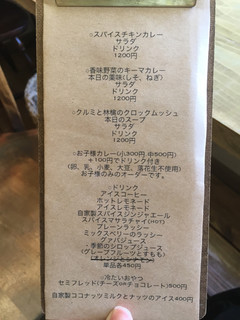 ○スパイスチキンカレー
サラダ
ドリンク
1200円
○香味野菜のキーマカレー
本日の薬味(しそ、ねぎ)
サラダ
ドリンク
1200円
○クルミと林檎のクロックムッシュ
本日のスープ
サラダ
ドリンク
1200円
○お子様カレー(小300円 中500円)
+100円でドリンク付き
(卵、乳、小麦、大豆、落花生不使用)
お子様のみのオーダーです。
ドリンク
アイスコーヒー
ホットレモネード
アイスレモネード
自家製スパイスジンジャエール
スパイスマサラチャイ(HOT)
プレーンラッシー
ミックスベリーのラッシー
グァバジュース
・季節のシロップジュース
(グレープフルーツとすもも)
単品各450円
・冷たいおやつ
セミフレッド(チーズorチョコレート)500円
自家製ココナッツミルクとナッツのアイス400円